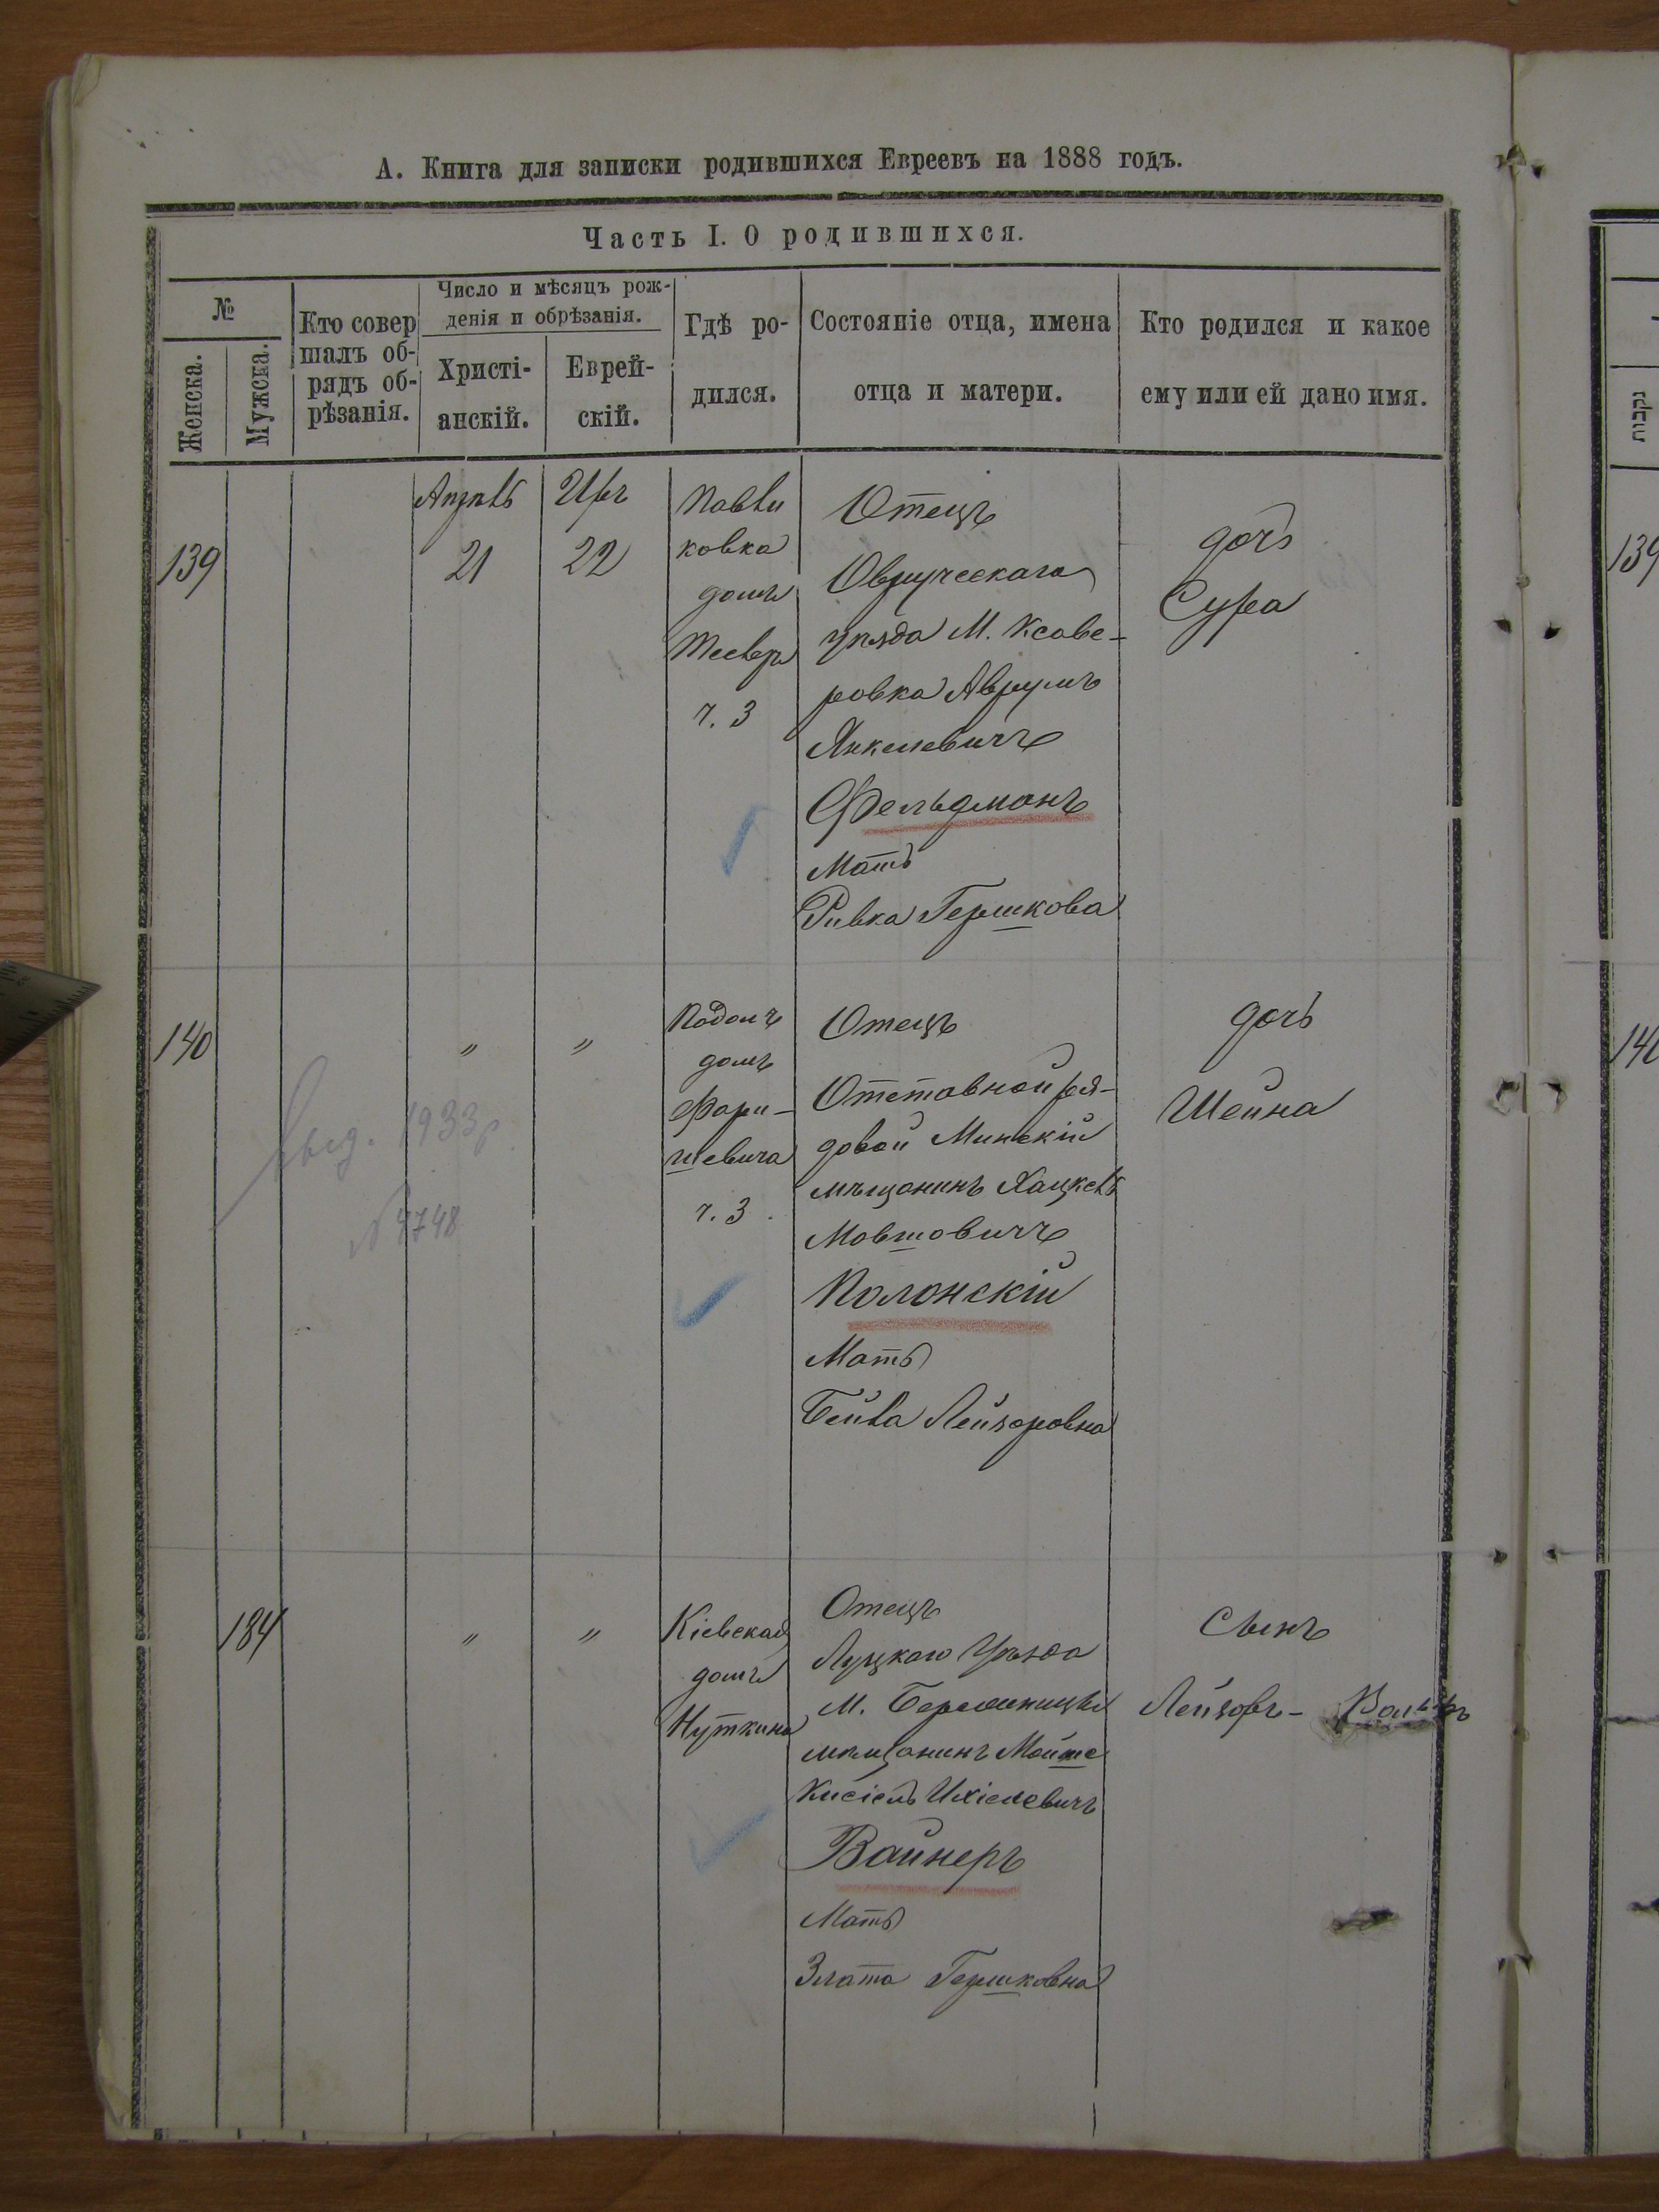 А. Книга для записки родившихся Евреевъ на 1888 годъ.
Часть I. О родившихся.
№
Женска.
Мужска.
Кто совер
шалъ об-
рядъ об-
рѣзанія.
Число и мѣсяцъ рож-
денія и обрѣзанія.
Христі-
анскій.
Еврей-
скій.
Гдѣ ро-
дился.
Состояніе отца, имена
отца и матери.
Кто родился и какое
ему или ей дано имя.
139
21
22
ковка
домъ
ч. 3
Отецъ
Овручскаго
уѣзда М. Ксаве-
ровка Аврумъ
Янкелевичъ
Фельдманъ
Мать
Ривка Гершкова
дочь
Сура
140
"
"
Подолъ
домъ
Фари-
шевича
ч. 3
Отецъ
Отставной ря-
довой Минскій
мѣщанинъ Хацкель
Мовшовичъ
Полонскій
Мать
Бейла Лейзоровна
дочь
Шейна
1933р
№ 4748
184
"
"
Кіевская
домъ
Нуткина
Отецъ
Луцкаго Уѣзда
мѣщанинъ Мойше
Кисіель Ихіелевичъ
Вайнеръ
Мать
Злата Гершковна
Сынъ
Лейзоръ-
139
140
נקבות